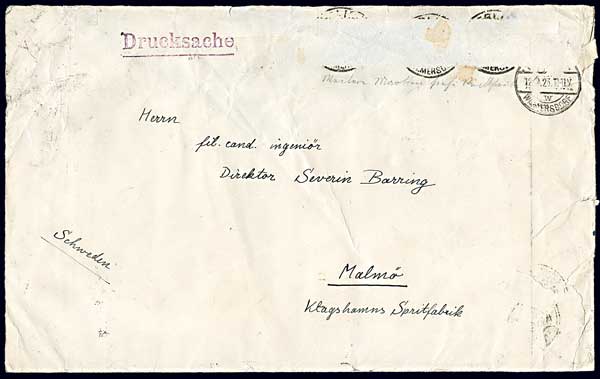 Drucksache
WILMERSDORF
W
Herrn
fil. cand. ingeniör
Direktor Severin Barring
Schweden
Malmö
Klagshamns Spritfabrik